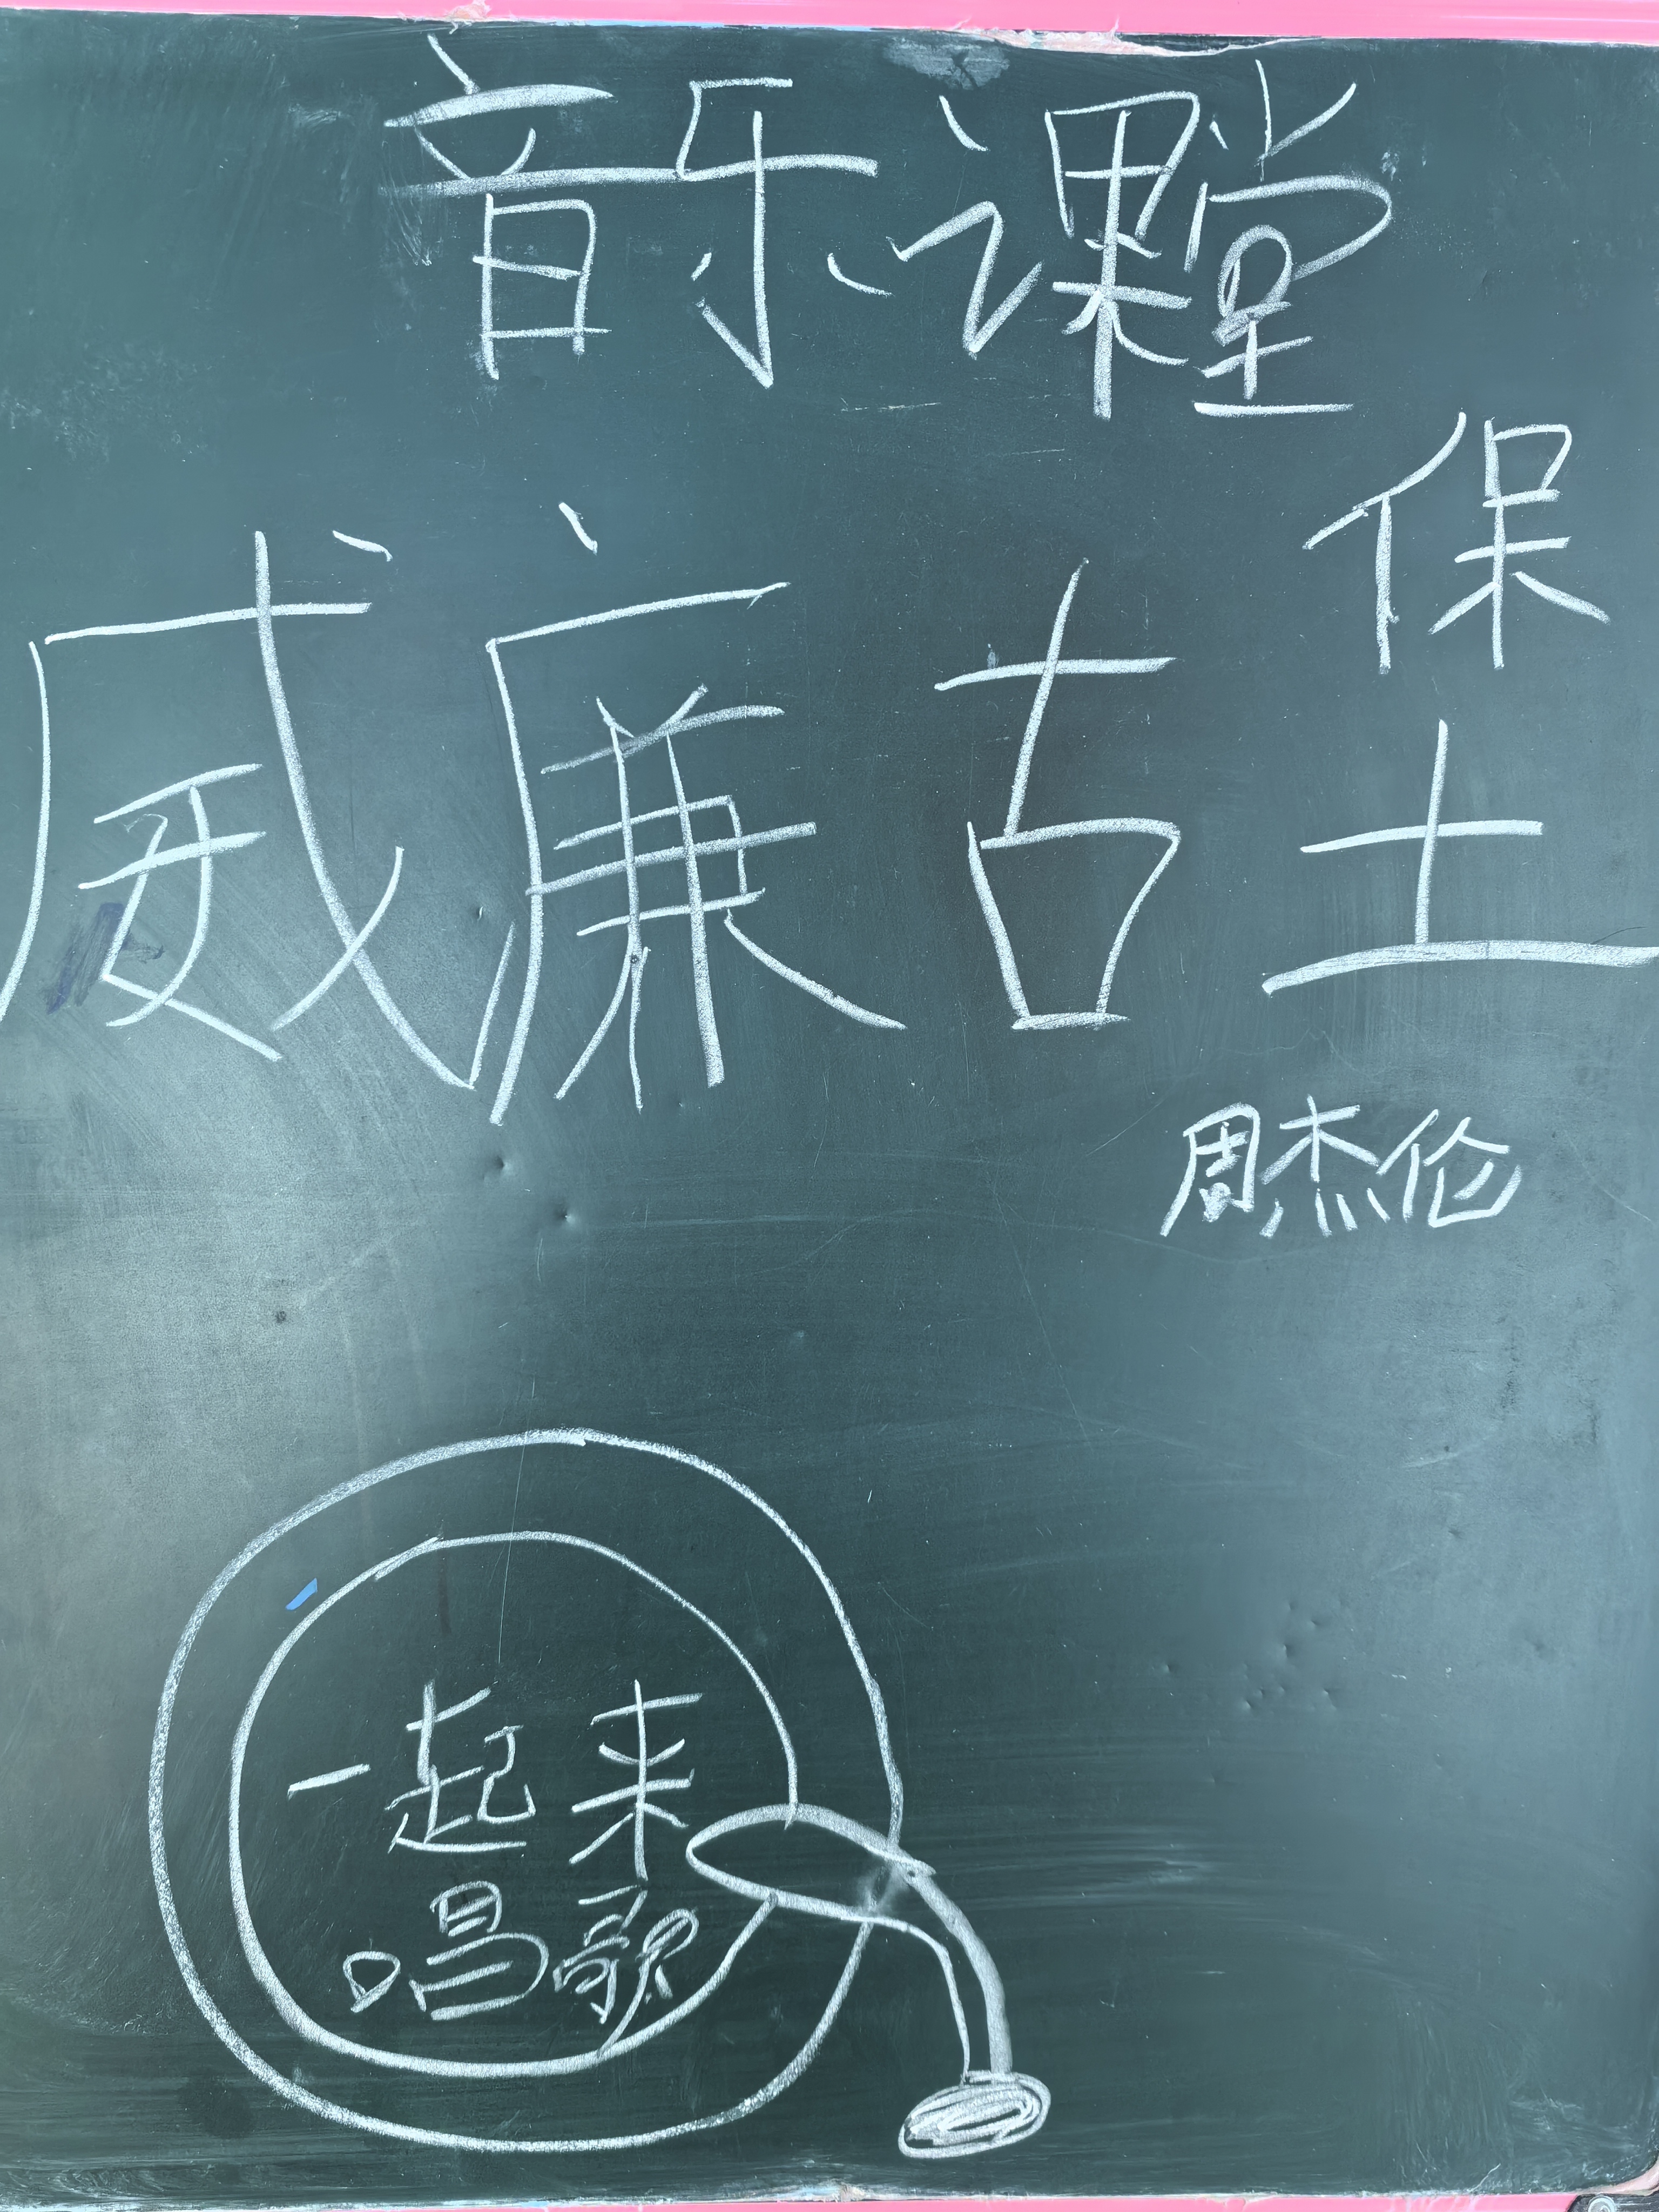 音乐课堂
威廉古堡
周杰伦
一起来
唱歌